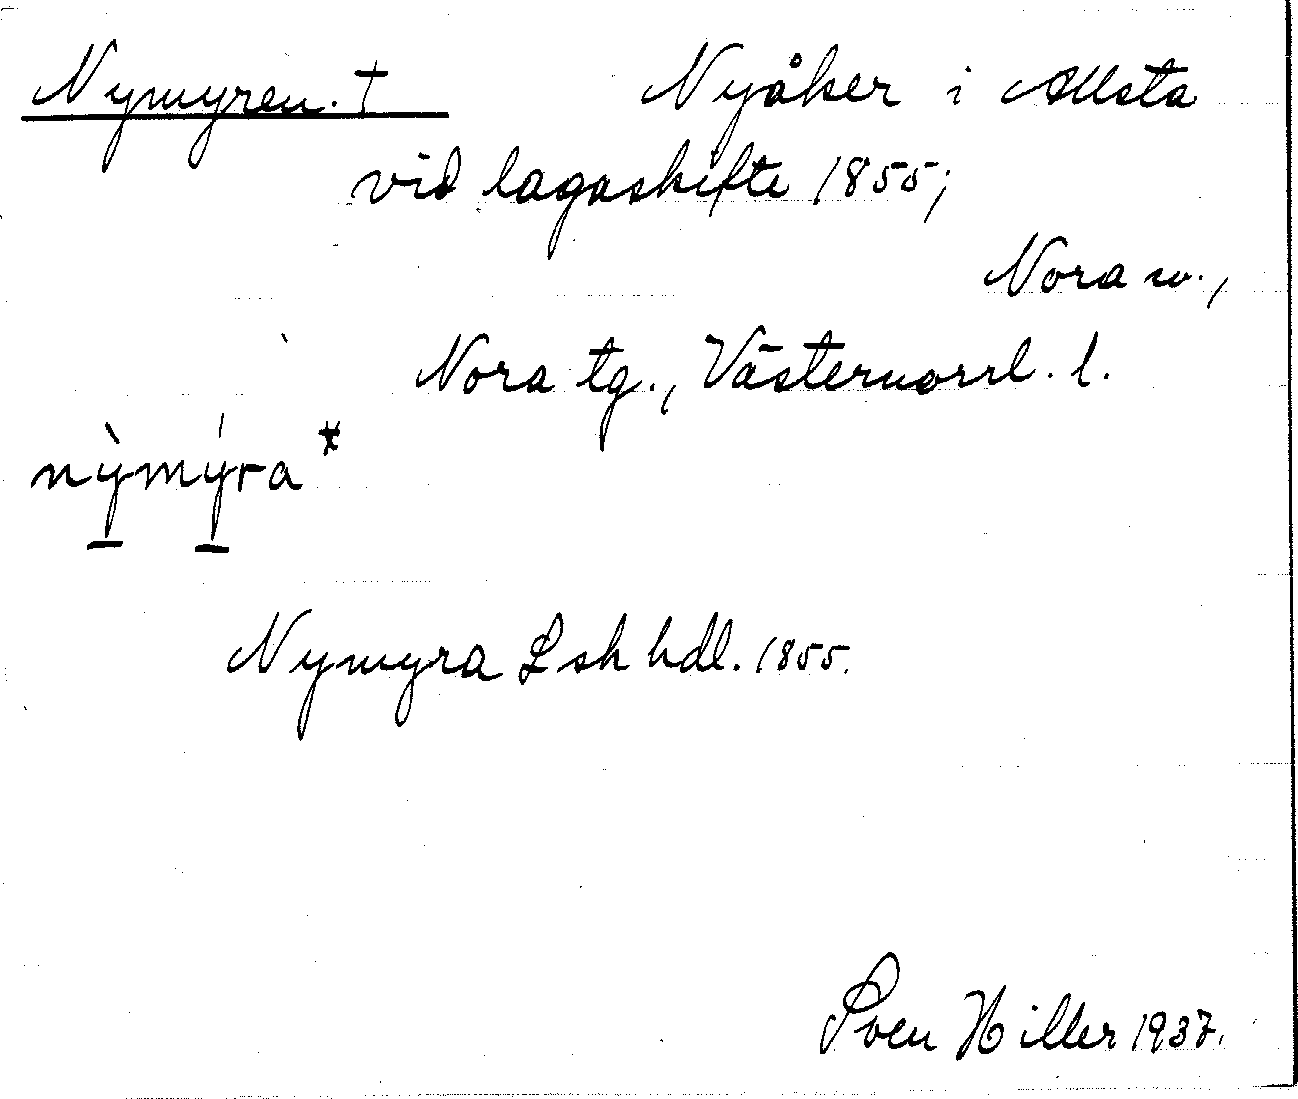 Nymyren. † Nyåker i Allsta
vid lagaskifte 1855;
Nora sn.,
Nora tg., Västernorrl. l.
nỳmýra*
Nymyra Lskhdl. 1855.
Sven Hiller 1937.